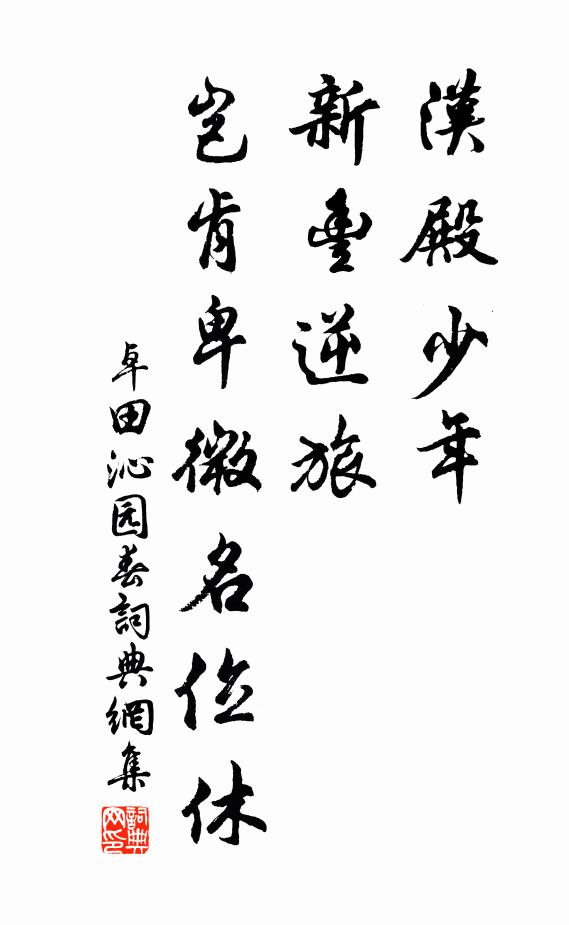 漢殿少年
新豊逆旅
岂肯卑微名位休
卓田沁园春詞典網集
詞典网印